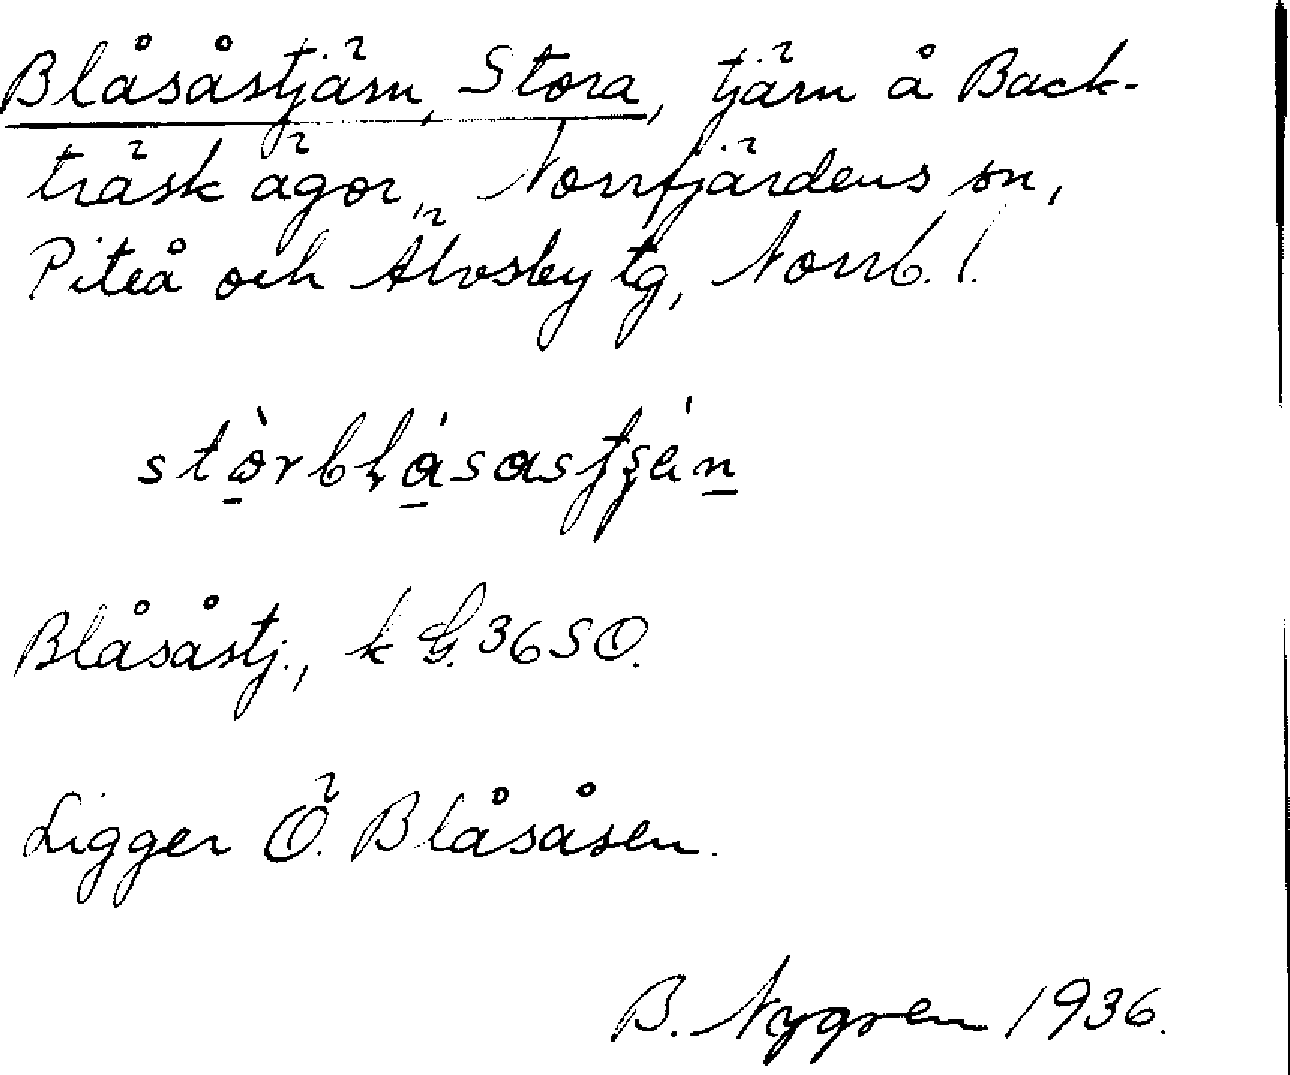 Blåsåstjärn, Stora, tjärn å Back-
träsk ägor, Norrfjärdens sn,
Piteå och Älvsby tg, Norrb. l.
Blåsåstj., k G. 36 SO.
Ligger Ö. Blåsåsen.
B. Nygren 1936.